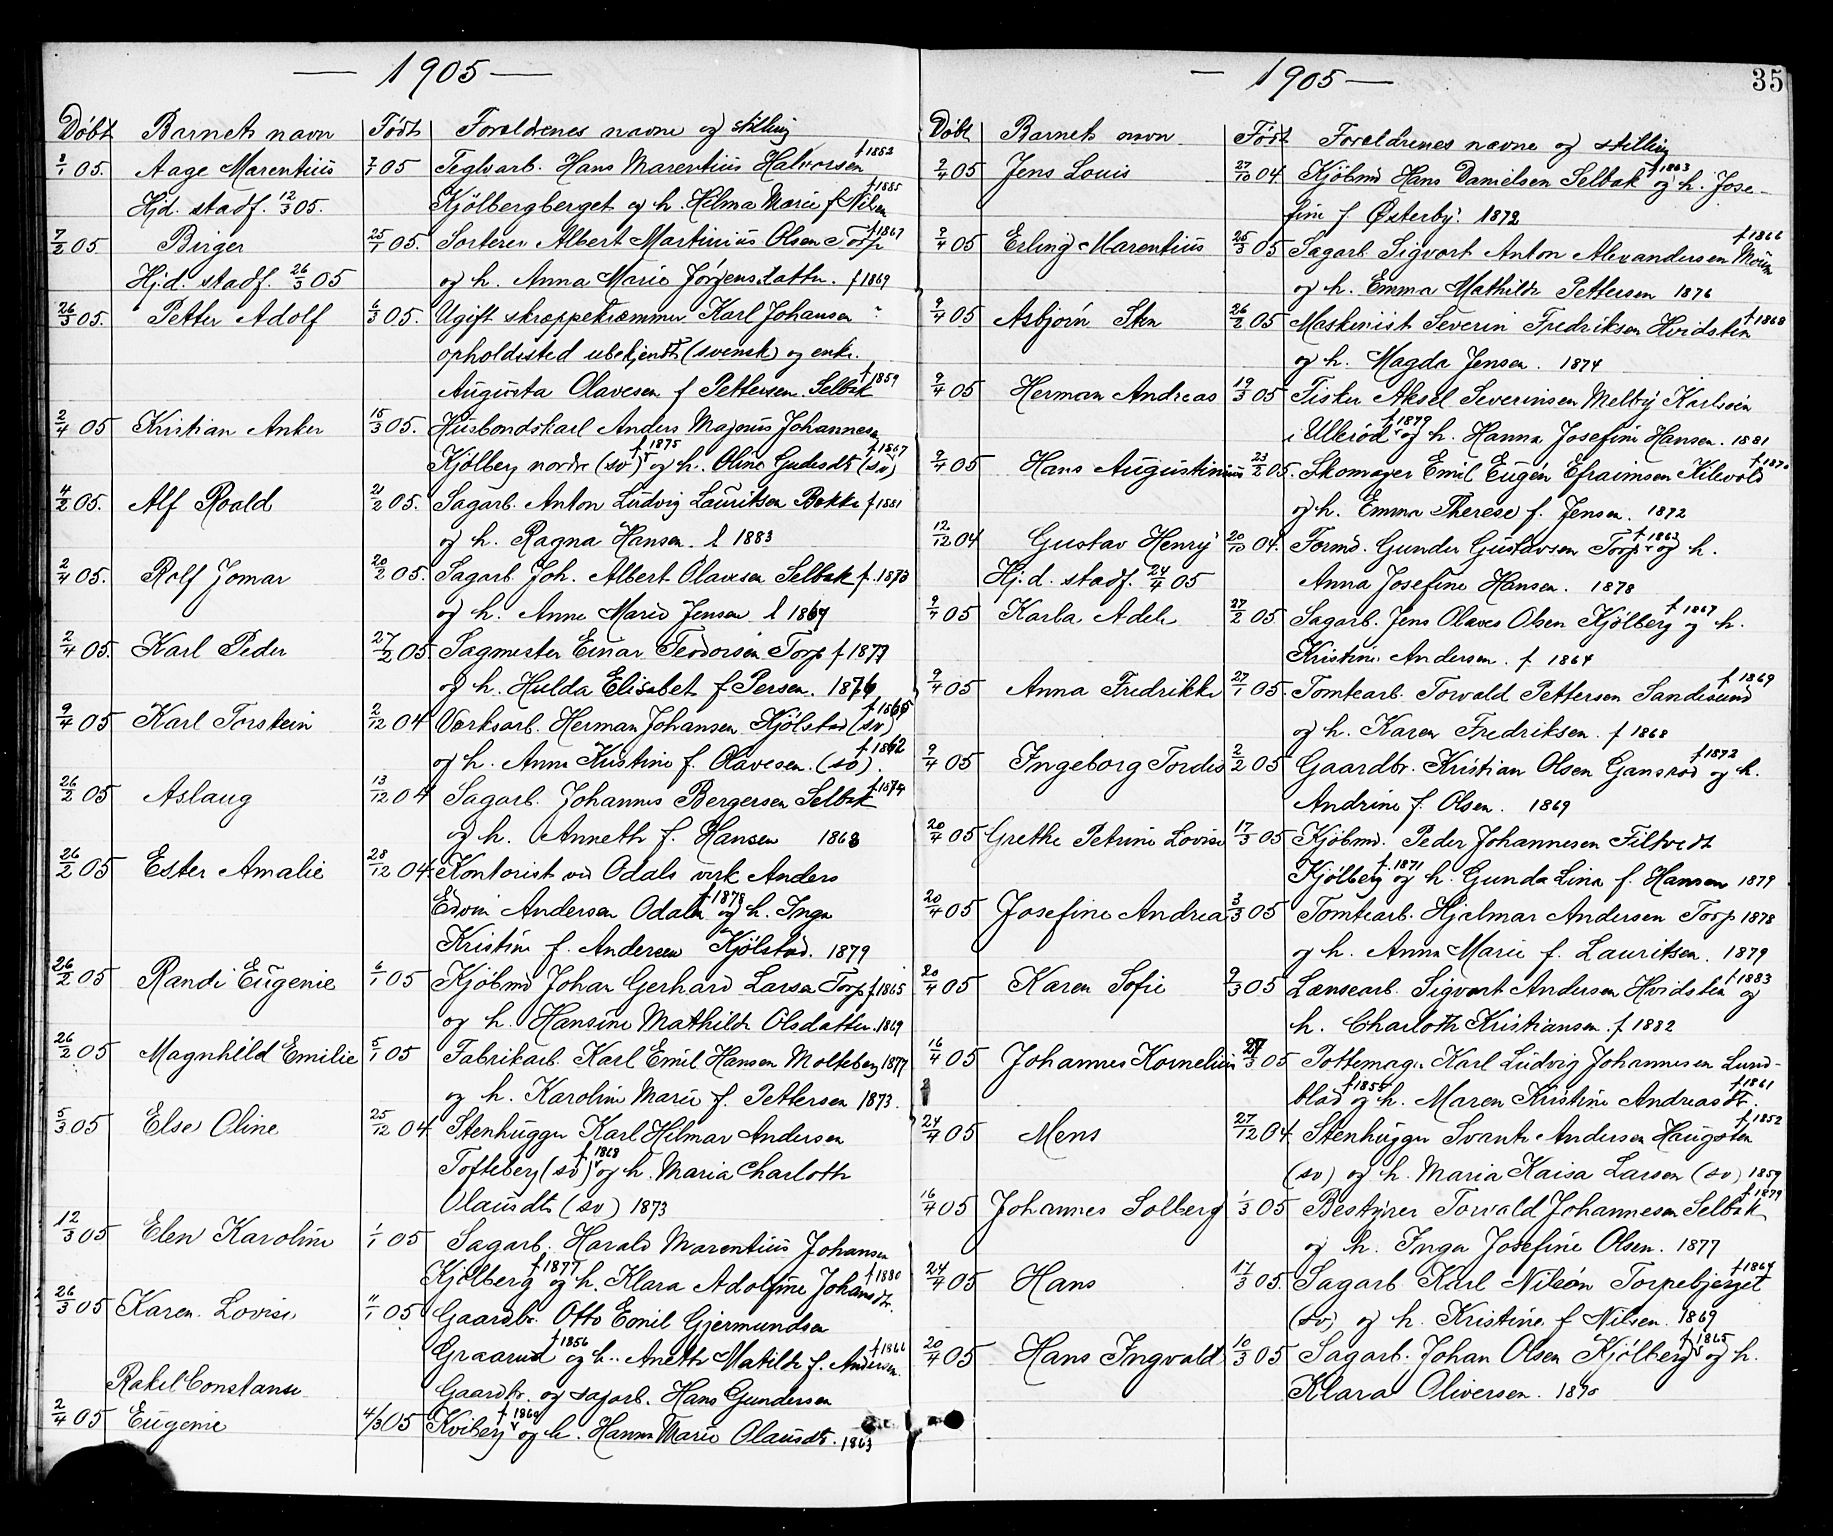 — 1905 —
Døbt Barnets navn Født Foreldrenes navne og stilling
8/1 05. Aage Marentius 7/1 05 Teglarb. Hans Marentius Halvorsen f 1852
Hjd. stadf. 12/3 05. Kjölbergberget og h. Helma Marie f Nilsen f 1885
7/2 05 Birger 25/1 05. Sorterer Albert Martinius Olsen Torp f 1867
Hjd. stadf. 26/3 05 og h. Anna Marie Jørgensdatter. f 1869
26/3 05. Petter Adolf 6/3 05. Ugift skræppekræmmer Karl Johansen
opholdssted ubekjendt (svensk) og enke
Augusta Olavesen f Pettersen Selbak f 1859
2/4 05 Kristian Anker 15/3 05. Husbondskarl Anders Magnus Johannesen
Kjölberg nordre (sv) f 1875 og h. Oline Gudesdt (sv) f 1867
4/2 05. Alf Roald 21/2 05. Sagarb. Anton Ludvig Lauritsen Bakke f 1881
og h. Ragna Hansen. f 1883
2/4 05. Rolf Jomar 20/2 05. Sagarb. Joh. Albert Olavesen Selbak f. 1873
og h. Anne Marie Jensen f 1869
2/4 05. Karl Peder 27/2 05. Sagmester Einar Teodorsen Torp f 1873
og h. Hulda Elisabet f Persen. 1876
9/4 05 Karl Torstein 2/12 04 Værksarb. Herman Johansen Kjölstad (sv) f 1865
og h. Anna Kristine f. Olavesen. (sv). f 1862
26/2 05 Aslaug 13/12 04 Sagarb. Johannes Bergersen Selbak f 1874
og h. Anneth f. Hansen 1868
26/2 05 Ester Amalie 28/12 04. Kontorist ved Odals verk Anders
Edvin Andersen Odalen f 1879 og h. Inga
Kristine f. Andersen Kjölstad. 1879
26/2 05 Randi Eugenie 6/1 05 Kjöbmd Johan Gerhard Larsen Torp f. 1865
og h. Hansine Mathilde Olsdatter. 1869
26/2 05 Magnhild Emilie 5/1 05 Fabrikarb. Karl Emil Hansen Molteberg 1877
og h. Karoline Marie f. Pettersen 1873.
5/3 05 Else Oline 25/12 04 Stenhugger Karl Hilmar Andersen
Tofteberg (sv) f 1868 og h. Maria Charlothe
Olausdt (sv) 1873
12/3 05 Elen Karoline 1/1 05 Sagarb. Harald Marentius Johansen
Kjölberg f 1877 og h. Klara Adolfine Johansdtr. f 1880
26/3 05 Karen Lovise 11/1 05 Gaardbr. Otto Emil Gjermundsen
Graarud f 1856 og h. Anethe Matilde f. Andersen. f 1866
Rakel Constanse Gaardbr. og sagarb. Hans Gundersen
2/4 05 Eugenie 4/3 05 Kviberg f 1860 og h. Hanna Marie Olausdt. 1863
— 1905 —
35
Døbt Barnets navn Født Foreldrenes navne og stilling
2/4 05 Jens Louis 27/10 04 Kjöbmd Hans Danielsen Selbak f 1863 og h. Jose-
fine f Østerby. 1872
9/4 05 Erling Marentius 25/3 05 Sagarb. Sigvart Anton Alexandersen Moum f 1866
og h. Emma Mathilde Pettersen 1876
9/4 05 Asbjørn Sten 26/2 05 Maskinist Severin Fredriksen Hvidsten f 1868
og h. Magda Jensen. 1874
9/4 05 Herman Andreas 19/3 05 Fisker Aksel Severinsen Melby Karlsöen
i Ullerød f 1879 og h. Hanna Josefine Hansen. 1881
9/4 05 Hans Augustinius 23/2 05. Skomager Emil Eugén Efraimsen Kilevold f 1870
og h. Emma Therese f. Jensen. 1872
12/12 04 Gustav Henry 20/10 04. Formd. Gunder Gustavsen Torp f 1863 og h.
Hj.d. stadf. 24/4 05 Anna Josefine Hansen. 1878
9/4 05 Karla Adele 27/2 05 Sagarb. Jens Olaves Olsen Kjölberg f 1867 og h.
Kristine Andersen. f 1864
9/4 05 Anna Fredrikke 27/1 05. Tomtearb. Torvald Pettersen Sandesund f 1869
og h. Karen Fredriksen. f 1868
9/4 05 Ingeborg Tordis 2/2 05 Gaardbr. Kristian Olsen Gansrød f 1872 og h.
Andrine f. Olsen. 1869
20/4 05 Grethe Petrine Lovise 17/3 05 Kjöbmd. Peder Johannesen Filtvedt
Kjölberg f 1871 og h. Gunda Lina f. Hansen 1879
20/4 05 Josefine Andrea 3/3 05 Tomtearb. Hjalmar Andersen Torp 1878
og h. Anna Marie f. Lauritsen. 1879
20/4 05 Karen Sofie 9/3 05 Lænsearb. Sigvart Andersen Hvidsten f 1883 og
h. Charlothe Kristiansen. f 1882
16/4 05 Johannes Kornelius 27/3 05 Pottemager Karl Ludvig Johannesen Lund-
blad f 1855 og h. Maren Kristine Andreasdt. f 1861
24/4 05 Mens 27/12 04 Stenhugger Svante Andersen Haugsten f 1852
(sv) og h. Maria Kaisa Larsen (sv) 1859
16/4 05 Johannes Solberg 1/3 05 Bestyrer Torvald Johannesen Selbak f 1879
og h. Inga Josefine Olsen. 1877
24/4 05 Hans 17/3 05. Sagarb. Karl Nilsön Torpebjerget f 1864
(sv) og h. Kristine f Nilsen. 1869
20/4 05 Hans Ingvald 10/3 05 Sagarb. Johan Olsen Kjölberg f 1865 og h.
Klara Oliversen. 1870